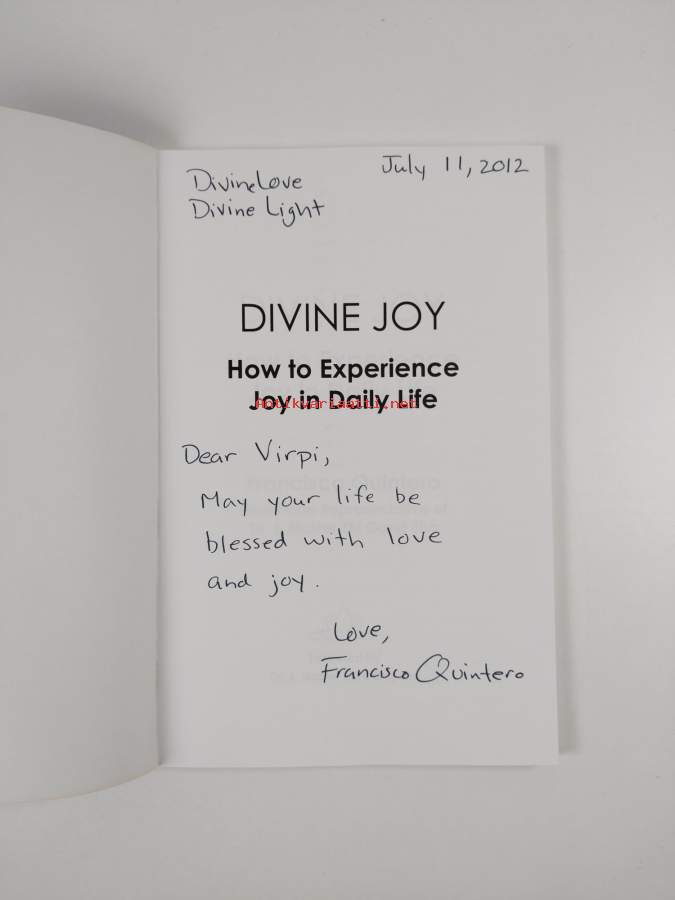 July 11, 2012
Divine Love
Divine Light
DIVINE JOY
How to Experience
Joy in Daily Life
Antikvariaatti.net
Dear Virpi,
May your life be
blessed with love
and joy.
Love,
Francisco Quintero